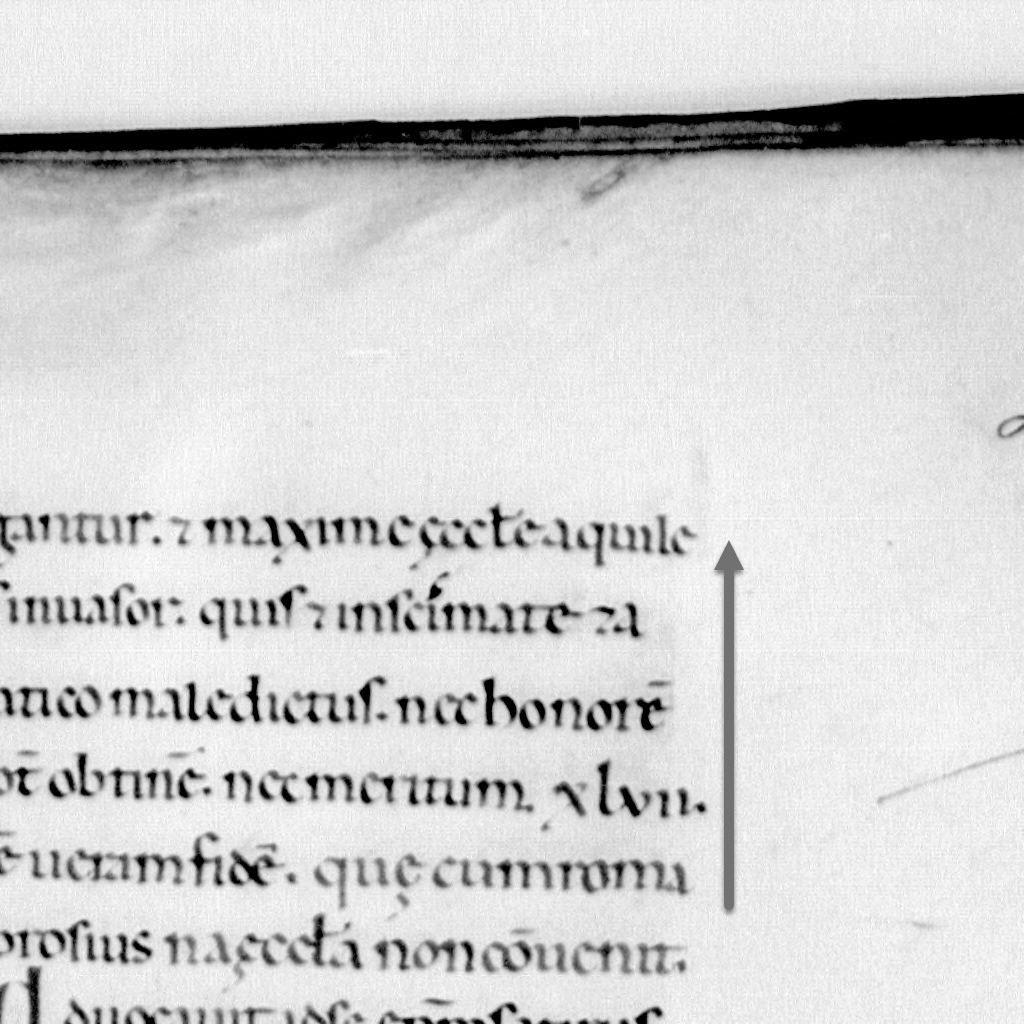 gantur. ⁊ maxime ęccłe aquile
inuasor. quis ⁊ in scismate ⁊ a
atico maledictus. nec honorē
ot̄ obtinē. nec meritum. xlvii.
ē ueram fidē. quę cum roma
brosius na ęccła non cōuenit.